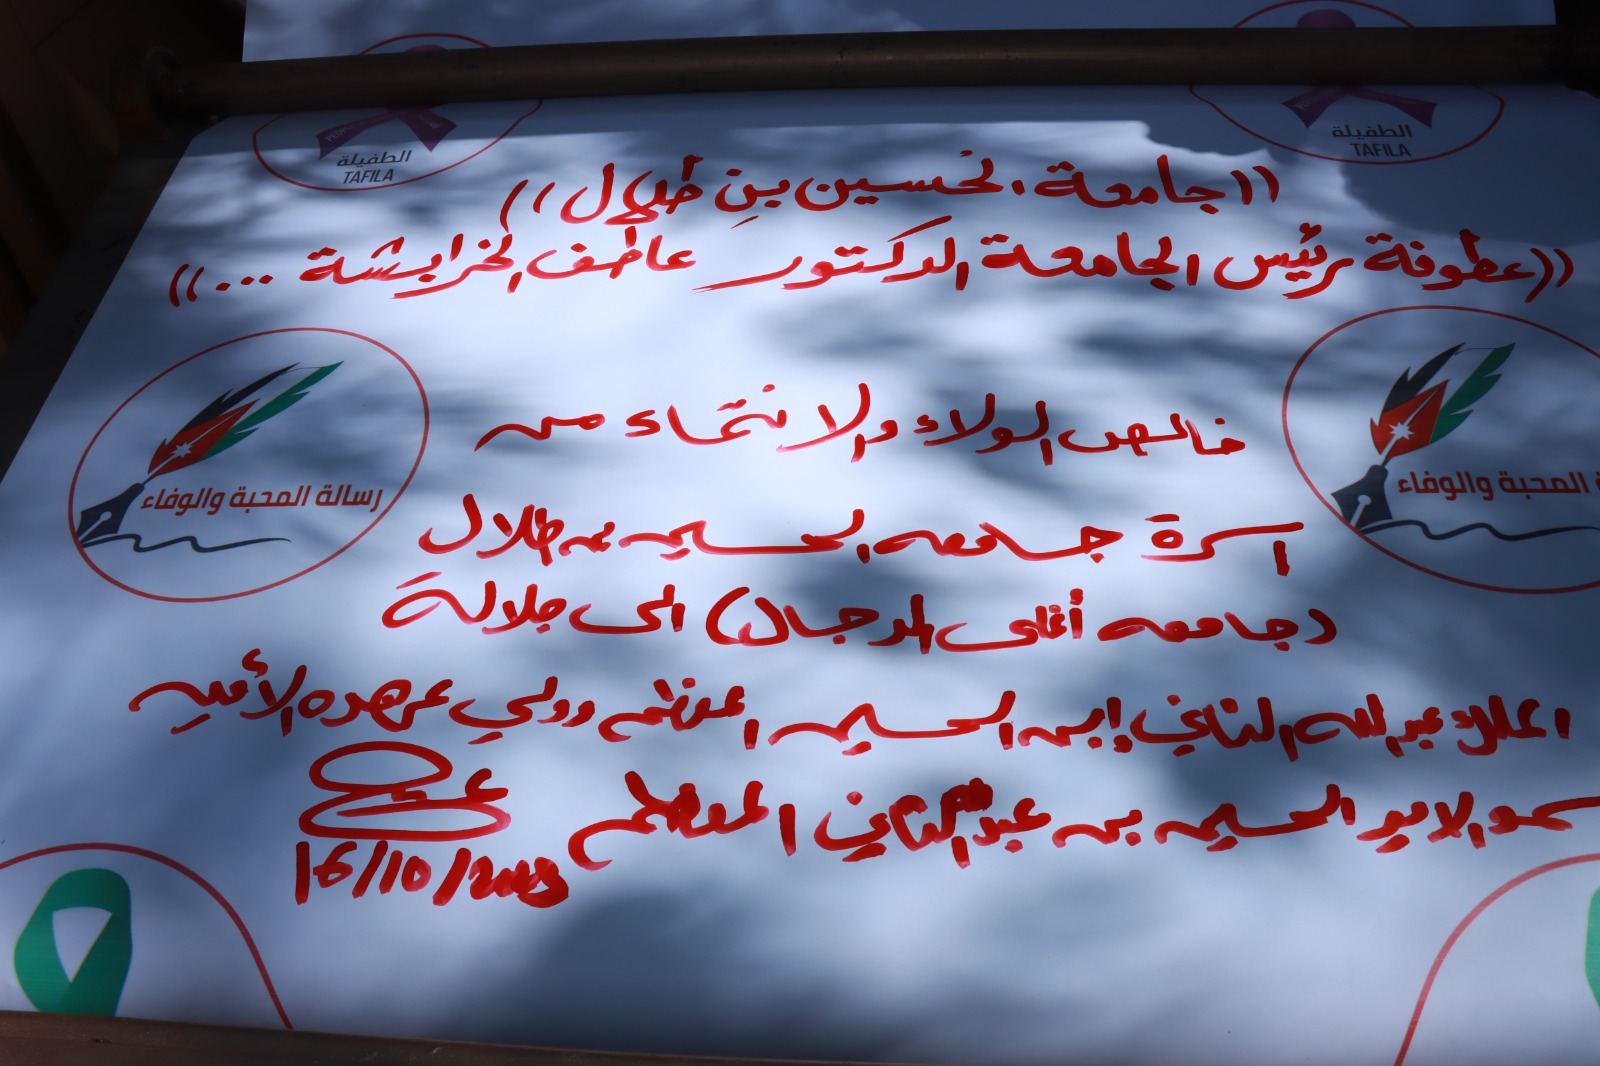 الطفيلة
TAFILA
الطفيلة
TAFILA
((جامعة الحسين بن طلال))
((عطوفة رئيس الجامعة الدكتور عاطف الخرابشة ...))
رسالة المحبة والوفاء
المحبة والوفاء
خالص الولاء والانتماء من
اسرة جامعه الحسين بن طلال
(جامعه أغلى الرجال) الى جلالة
الملك عبدالله الثاني إبن الحسين المعظم وولي عهده الأمين
سمو الامير الحسين بن عبدالله الثاني المعظم
16/10/2023